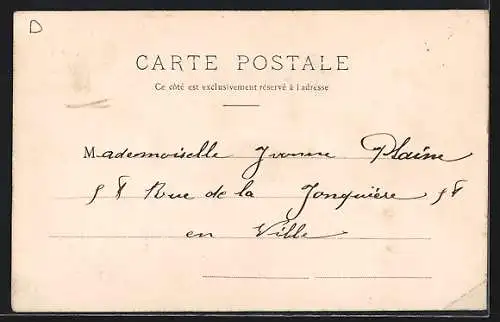 D
CARTE POSTALE
Ce côté est exclusivement réservé à l'adresse
Mademoiselle Yvonne Plaine
58 Rue de la Jonquière 58
en Ville